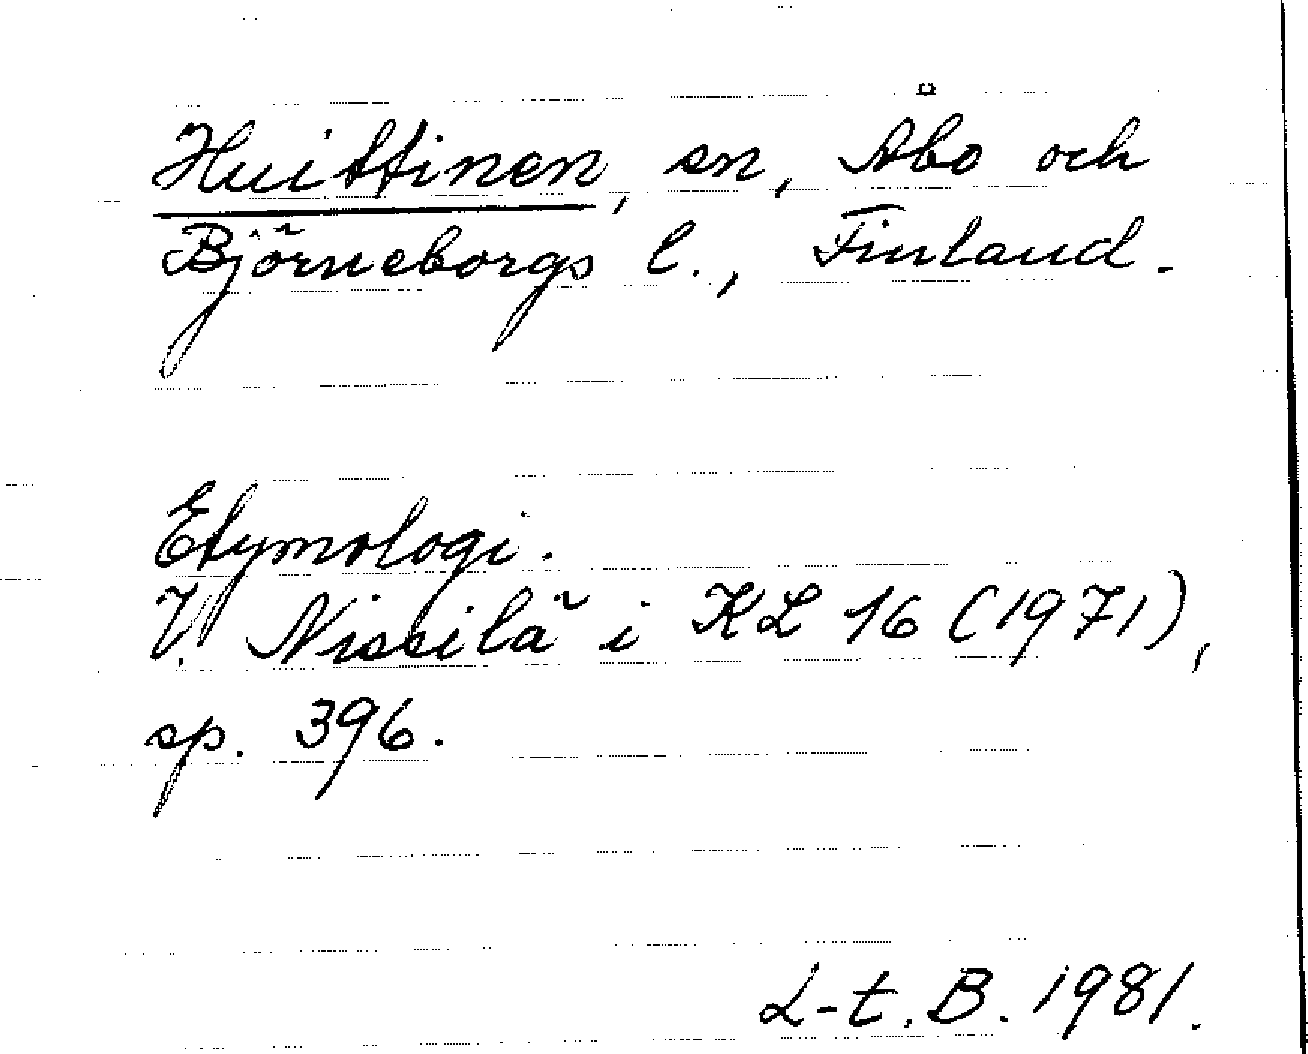 Huittinen, sn, Åbo och
Björneborgs l., Finland.
Etymologi.
V. Nissilä i KL 16 (1971),
sp. 396.
L-t. B. 1981.